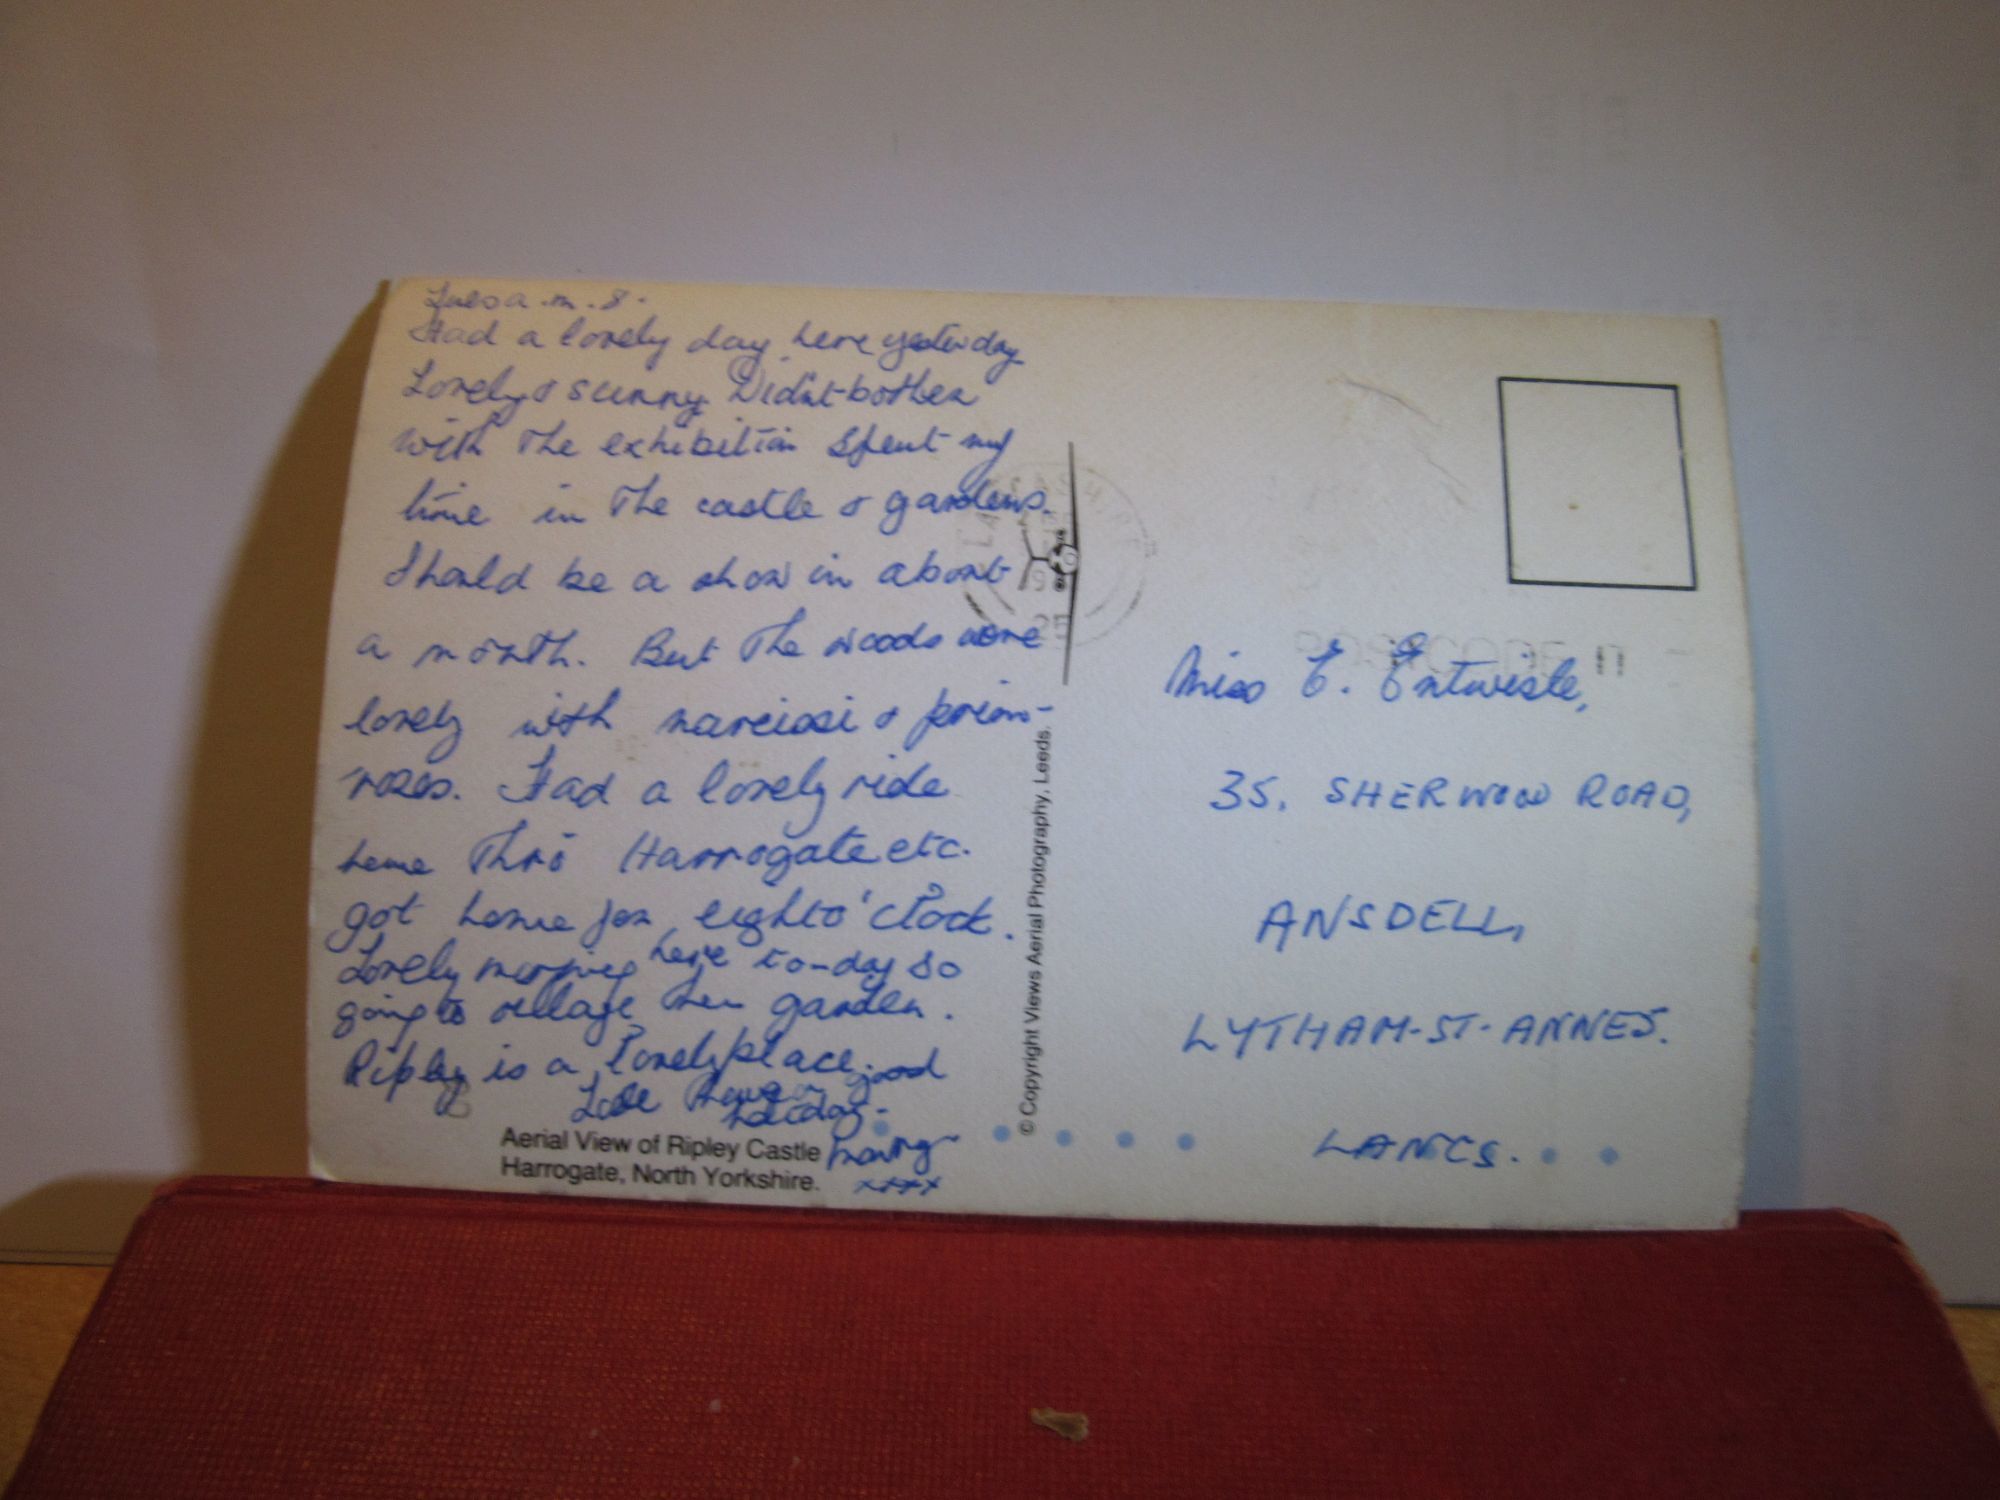 Tues a.m. 8.
Had a lovely day here yesterday
Lovely & sunny. Didnt bother
with the exhibition Spent my
time in the castle & gardens.
Should be a show in about
a month. But the woods were
lovely with narcissi & prim-
roses. Had a lovely ride
home thro Harrogate etc.
got home for eight o'clock.
Lovely morning here to-day so
going to village then garden.
Ripley is a lovely place. good
Love Have
holiday.
xxxx
Aerial View of Ripley Castle
Harrogate, North Yorkshire.
© Copyright Views Aerial Photography, Leeds.
LANCASHIRE
25
POSTCODE IT
Miss E. Entwistle,
35, SHERWOOD ROAD,
ANSDELL,
LYTHAM-ST-ANNES.
LANCS.